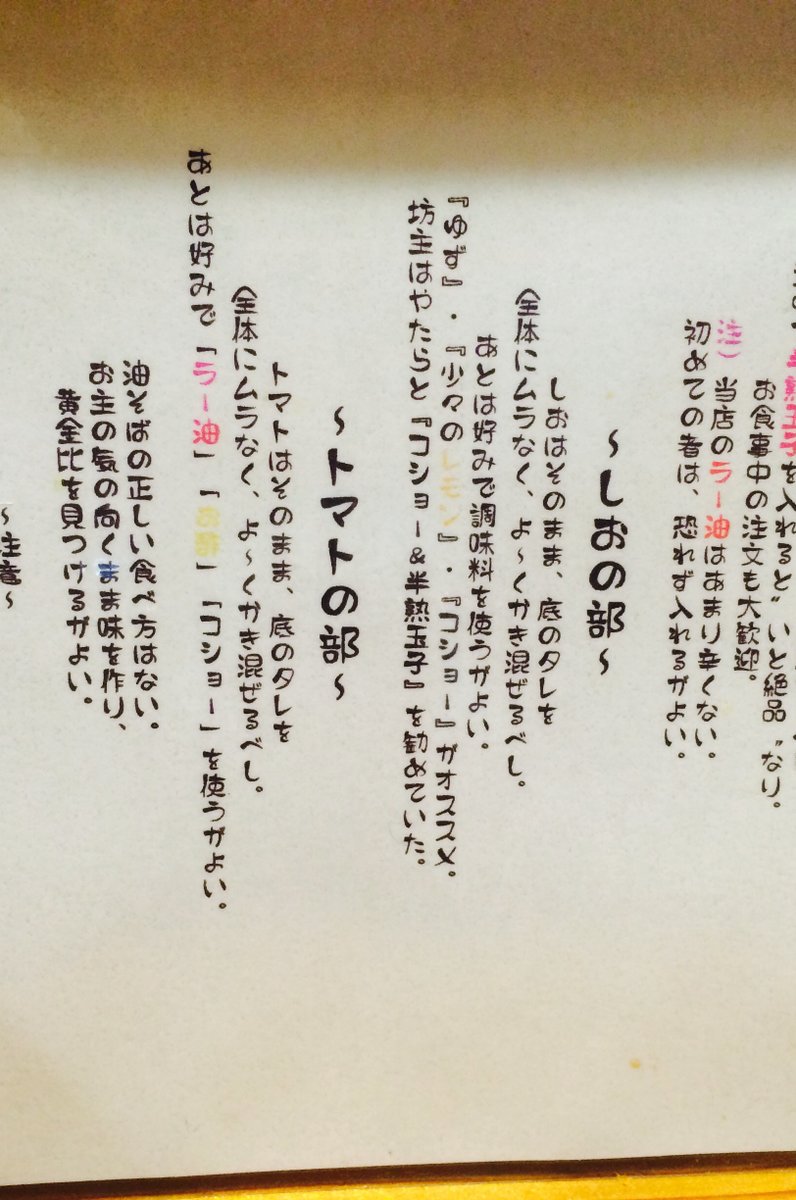 半熟玉子を入れると〝いと絶品〟なり。
お食事中の注文も大歓迎。
注）当店のラー油はあまり辛くない。
初めての者は、恐れず入れるがよい。
～しおの部～
しおはそのまま、底のタレを
全体にムラなく、よ～くかき混ぜるべし。
あとは好みで調味料を使うがよい。
『ゆず』・『少々のレモン』・『コショー』がオススメ。
坊主はやたらと『コショー&半熟玉子』を勧めていた。
～トマトの部～
トマトはそのまま、底のタレを
全体にムラなく、よ～くかき混ぜるべし。
あとは好みで「ラー油」「お酢」「コショー」を使うがよい。
油そばの正しい食べ方はない。
お主の気の向くまま味を作り、
黄金比を見つけるがよい。
～注意～